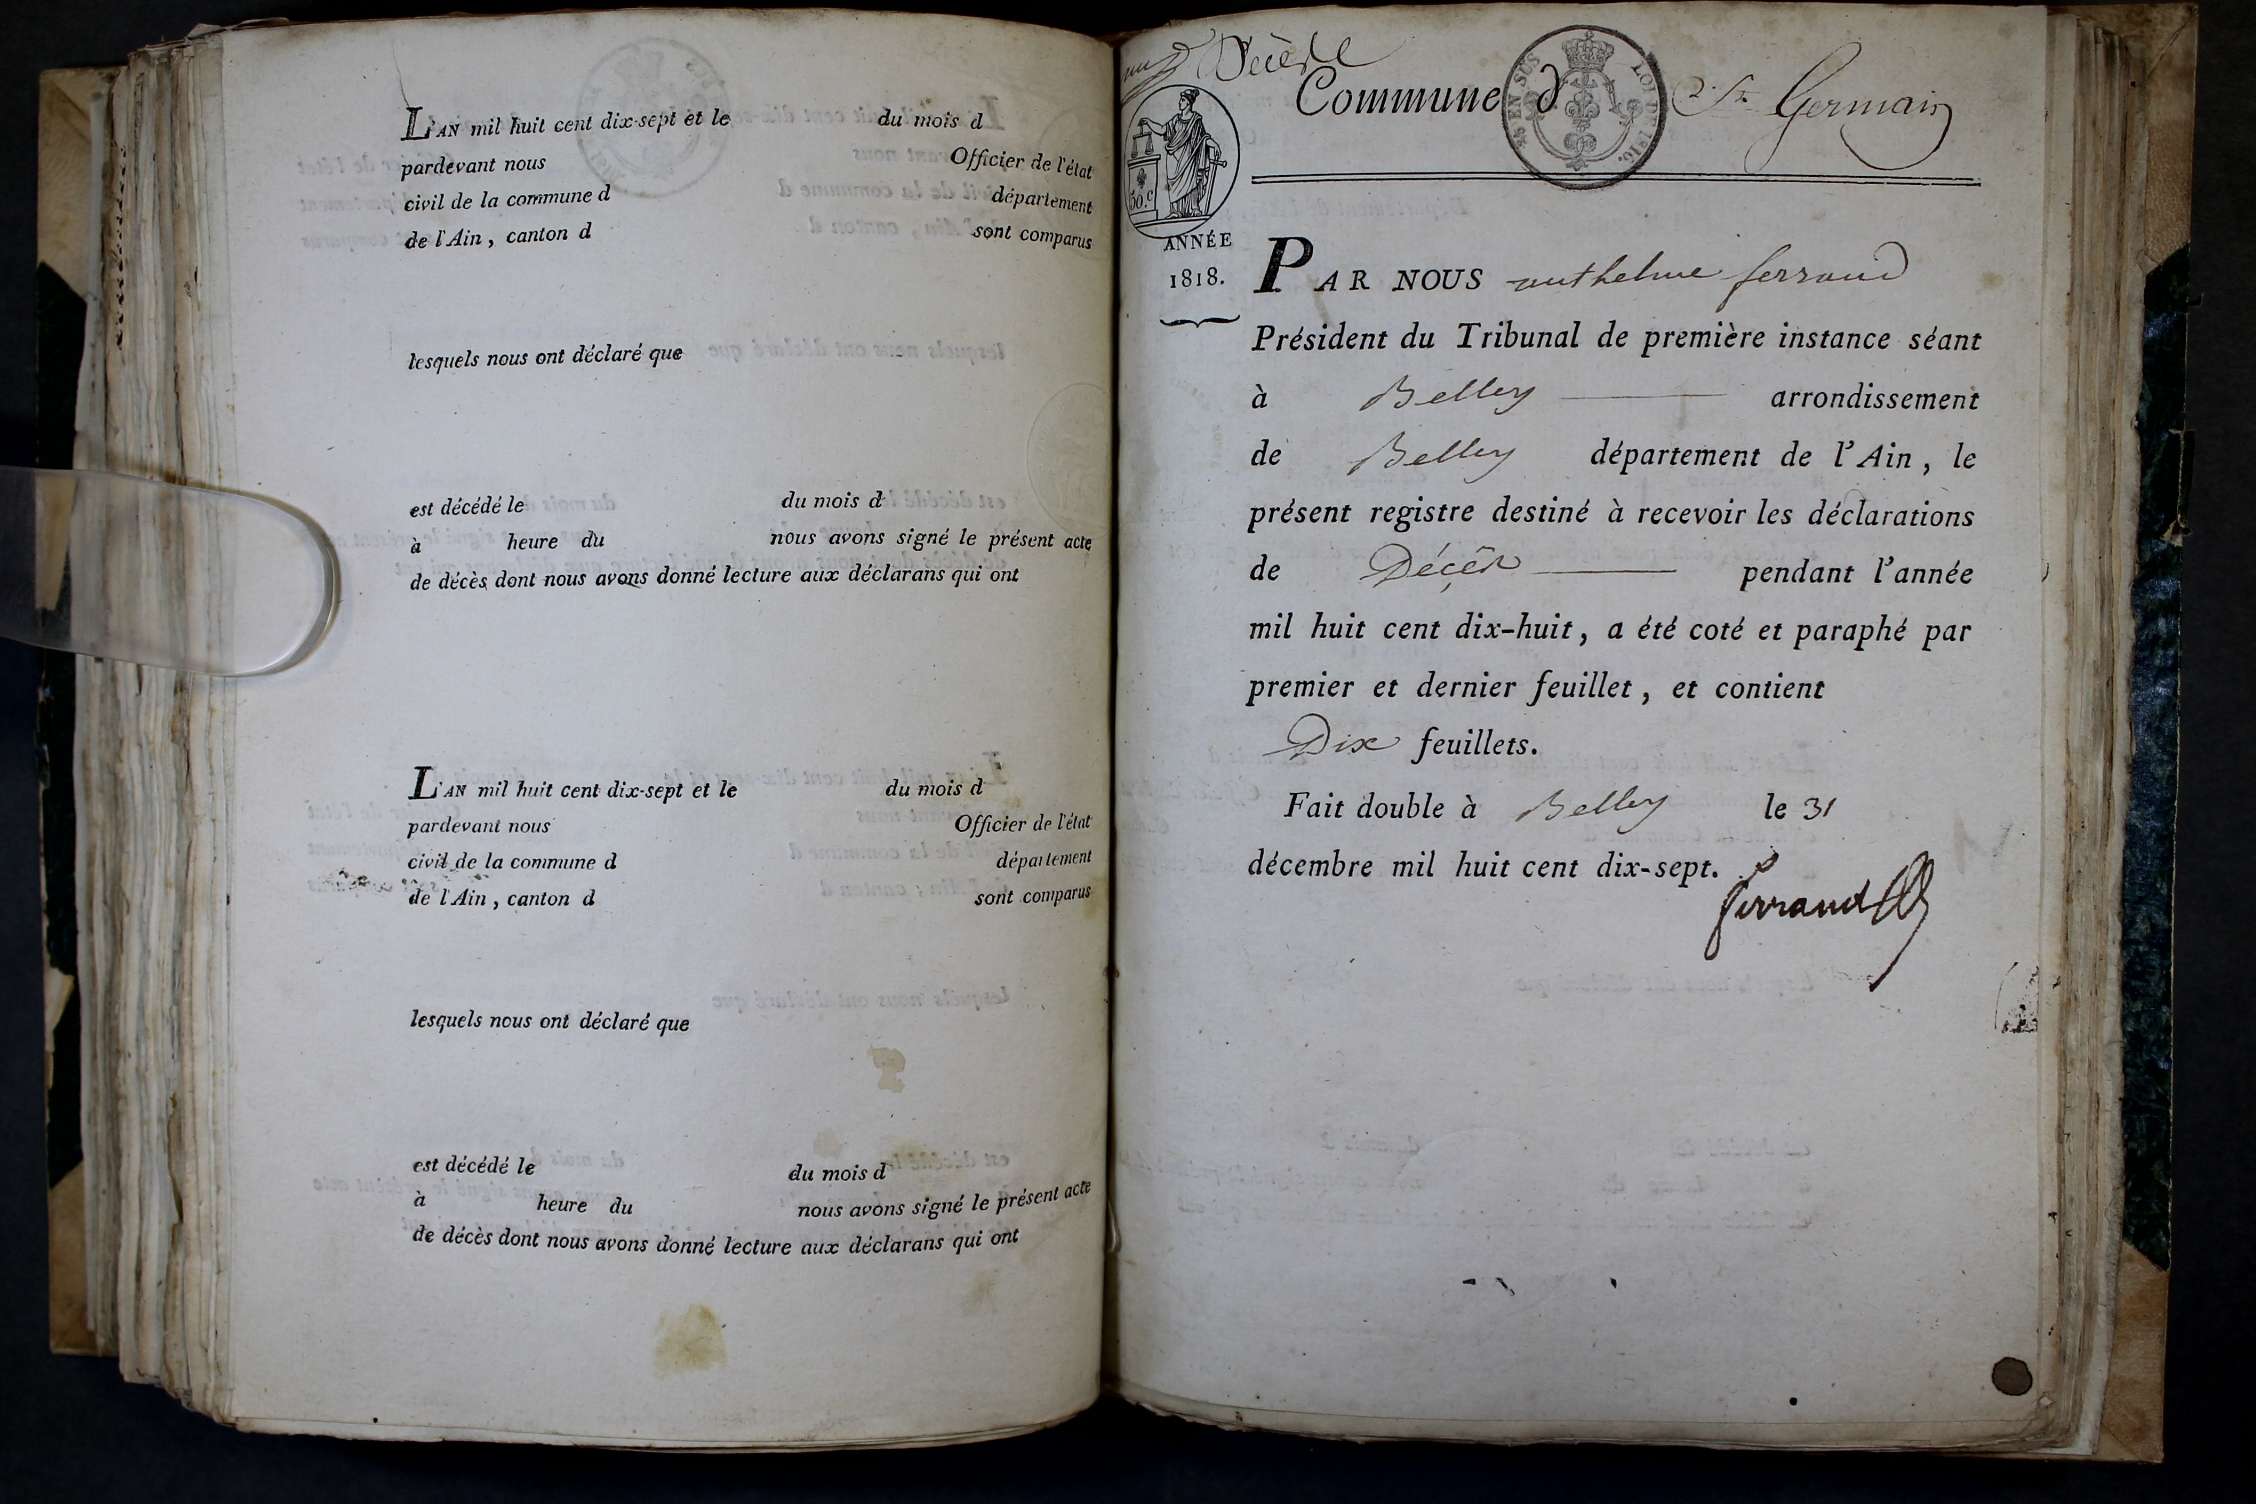 L'AN mil huit cent dix-sept et le du mois d
pardevant nous Officier de l'état
civil de la commune d département
de l'Ain, canton d sont comparus
lesquels nous ont déclaré que
est décédé le du mois d
à heure du nous avons signé le présent acte
de décès dont nous avons donné lecture aux déclarans qui ont
L'AN mil huit cent dix-sept et le du mois d
pardevant nous Officier de l'état
civil de la commune d département
de l'Ain, canton d sont comparus
lesquels nous ont déclaré que
est décédé le du mois d
à heure du nous avons signé le présent acte
de décès dont nous avons donné lecture aux déclarans qui ont
Décès
Commune d e St Germain
EN SUS LOI DE 1816.
50.c
ANNÉE
1818.
PAR NOUS anthelme ferrand
Président du Tribunal de première instance séant
à Belley arrondissement
de Belley département de l'Ain, le
présent registre destiné à recevoir les déclarations
de Décès pendant l'année
mil huit cent dix-huit, a été coté et paraphé par
premier et dernier feuillet, et contient
Dix feuillets.
Fait double à Belley le 31
décembre mil huit cent dix-sept.
ferrand